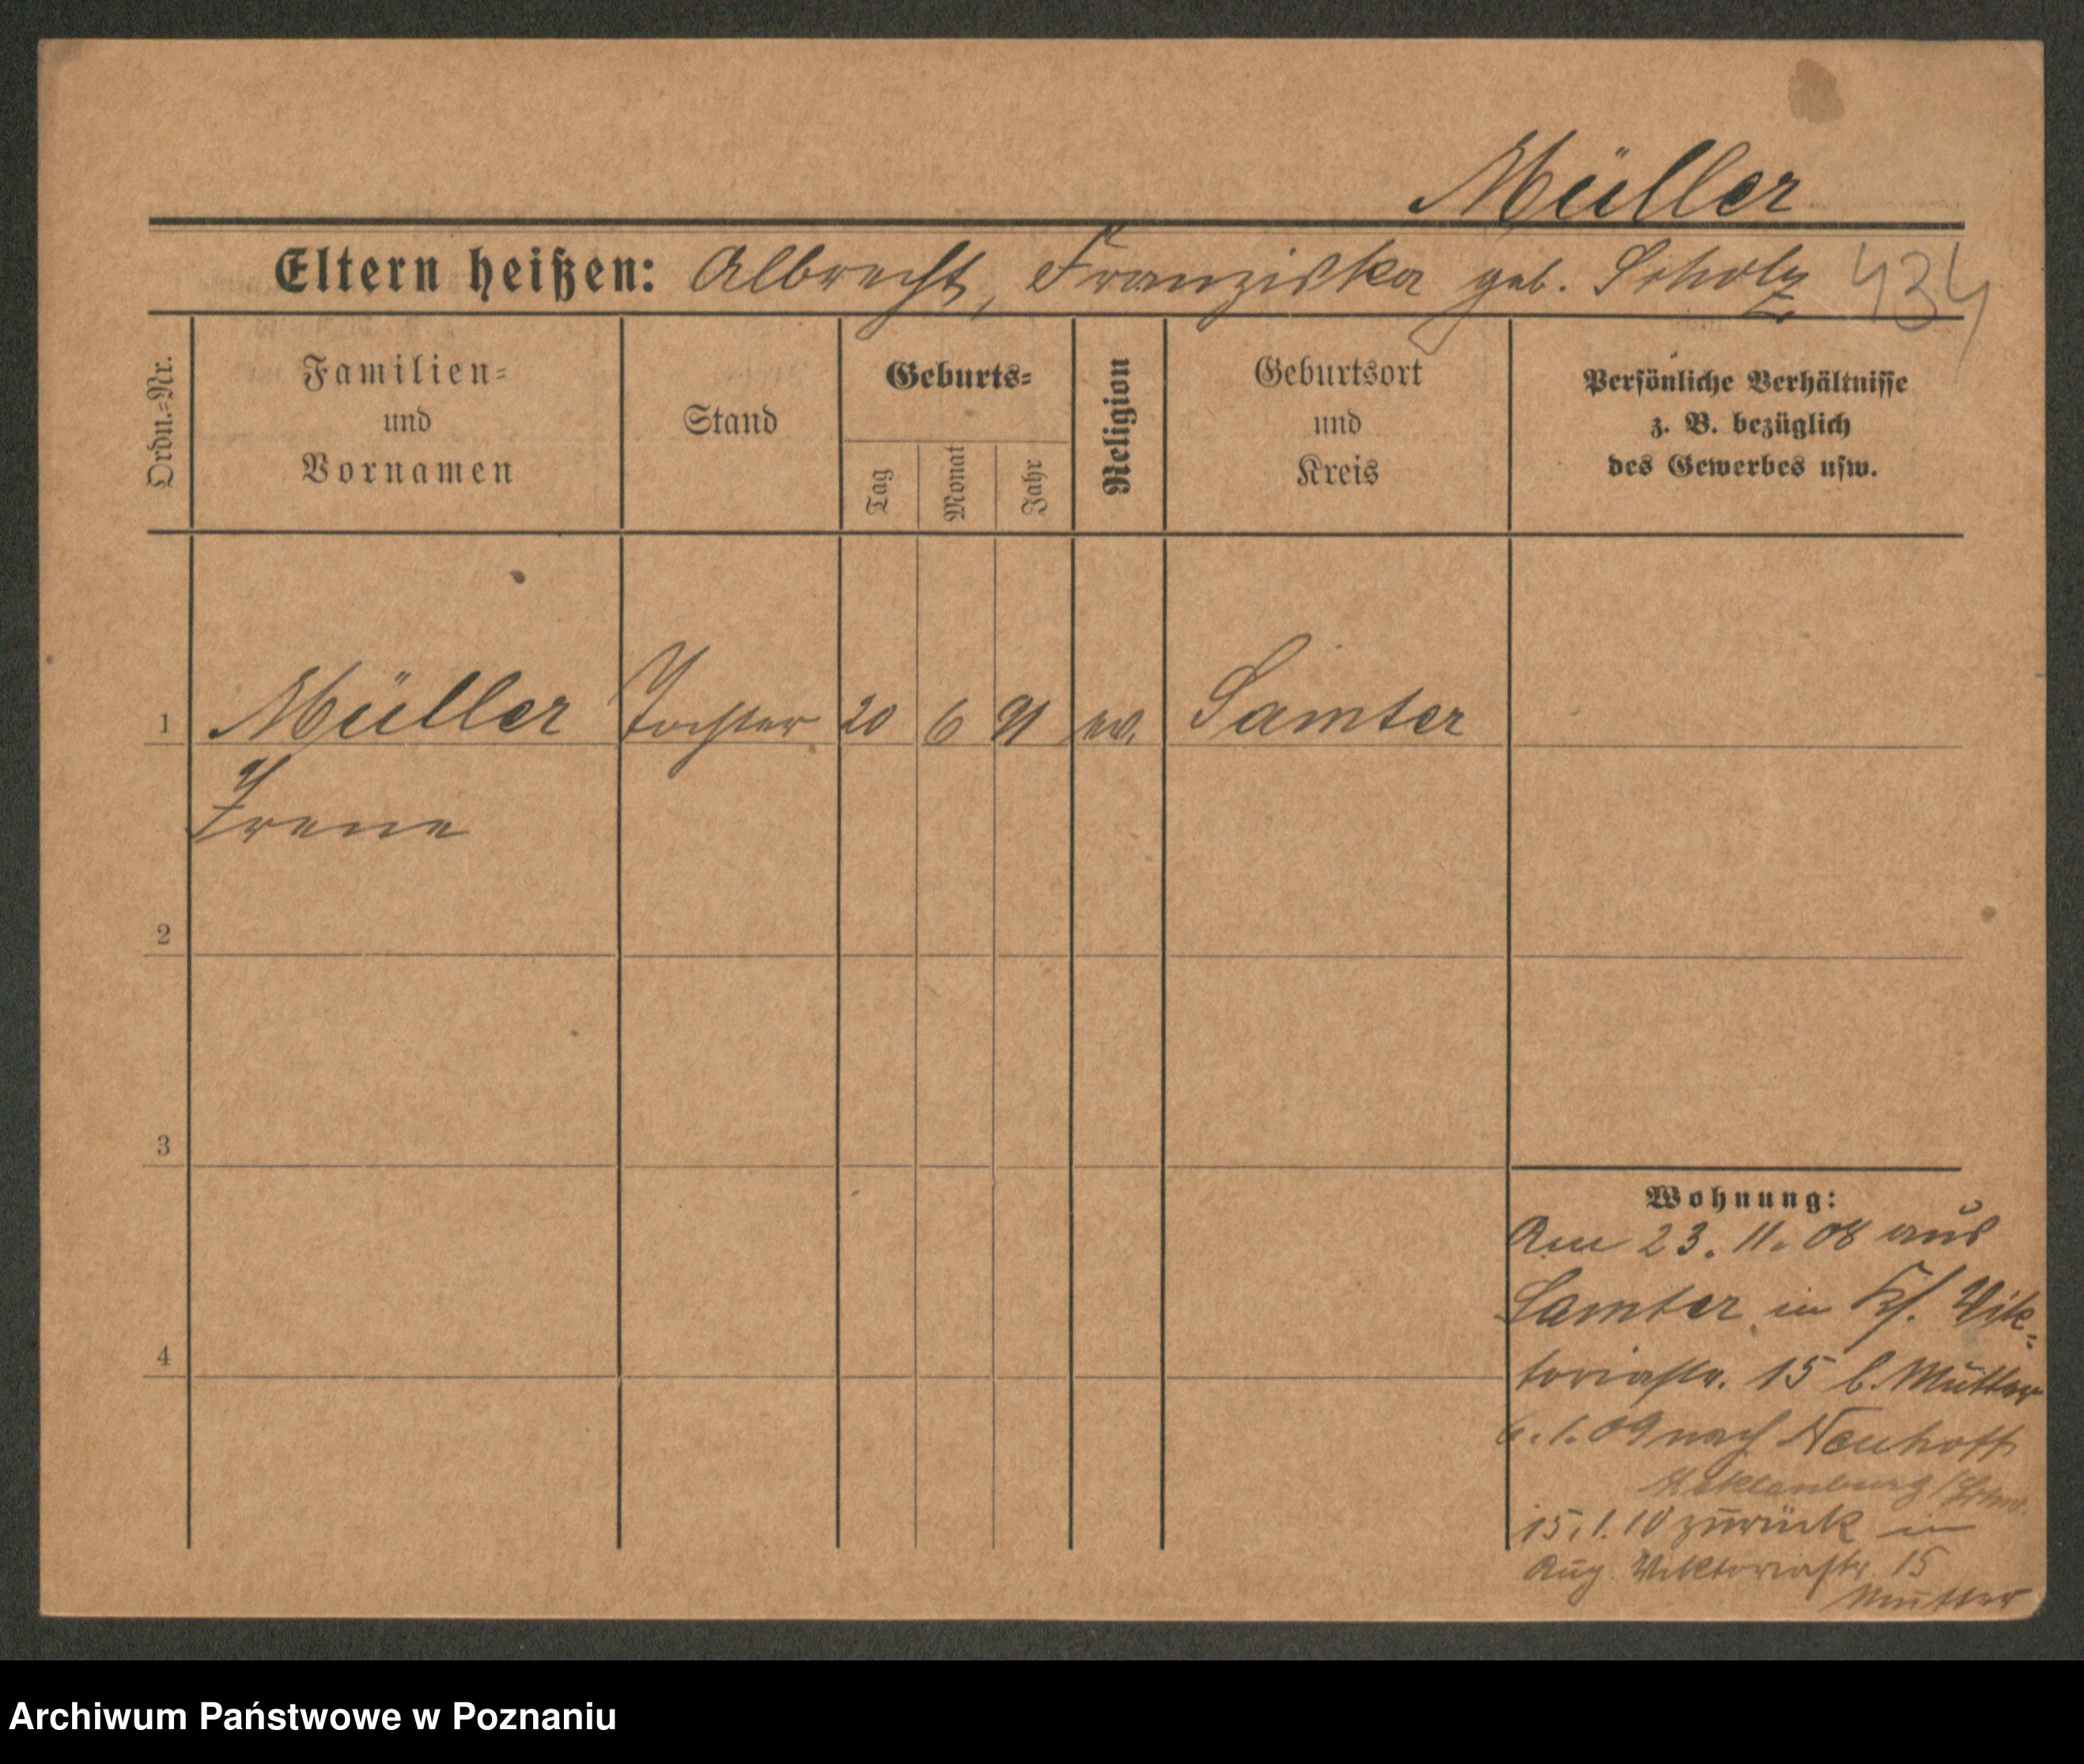 Müller
Eltern heißen: Albrecht, Franziska geb. Scholz 434
Ordn.-Nr.
Familien- und Vornamen
Stand
Geburts-
Tag
Monat
Jahr
Religion
Geburtsort und Kreis
Persönliche Verhältnisse
z. B. bezüglich
des Gewerbes usw.
1 Müller Tochter 20 6 91 ev. Samter
Irene
2
3
4
Wohnung:
Am 23. 11. 08 aus
Samter in Vik-
toriastr. 15 b. Mutter
6. 1. 09 nach Neuhoff
Meklenburg
15. 1. 10 zurück in
Aug. Viktoriastr. 15
Mutter
Archiwum Państwowe w Poznaniu